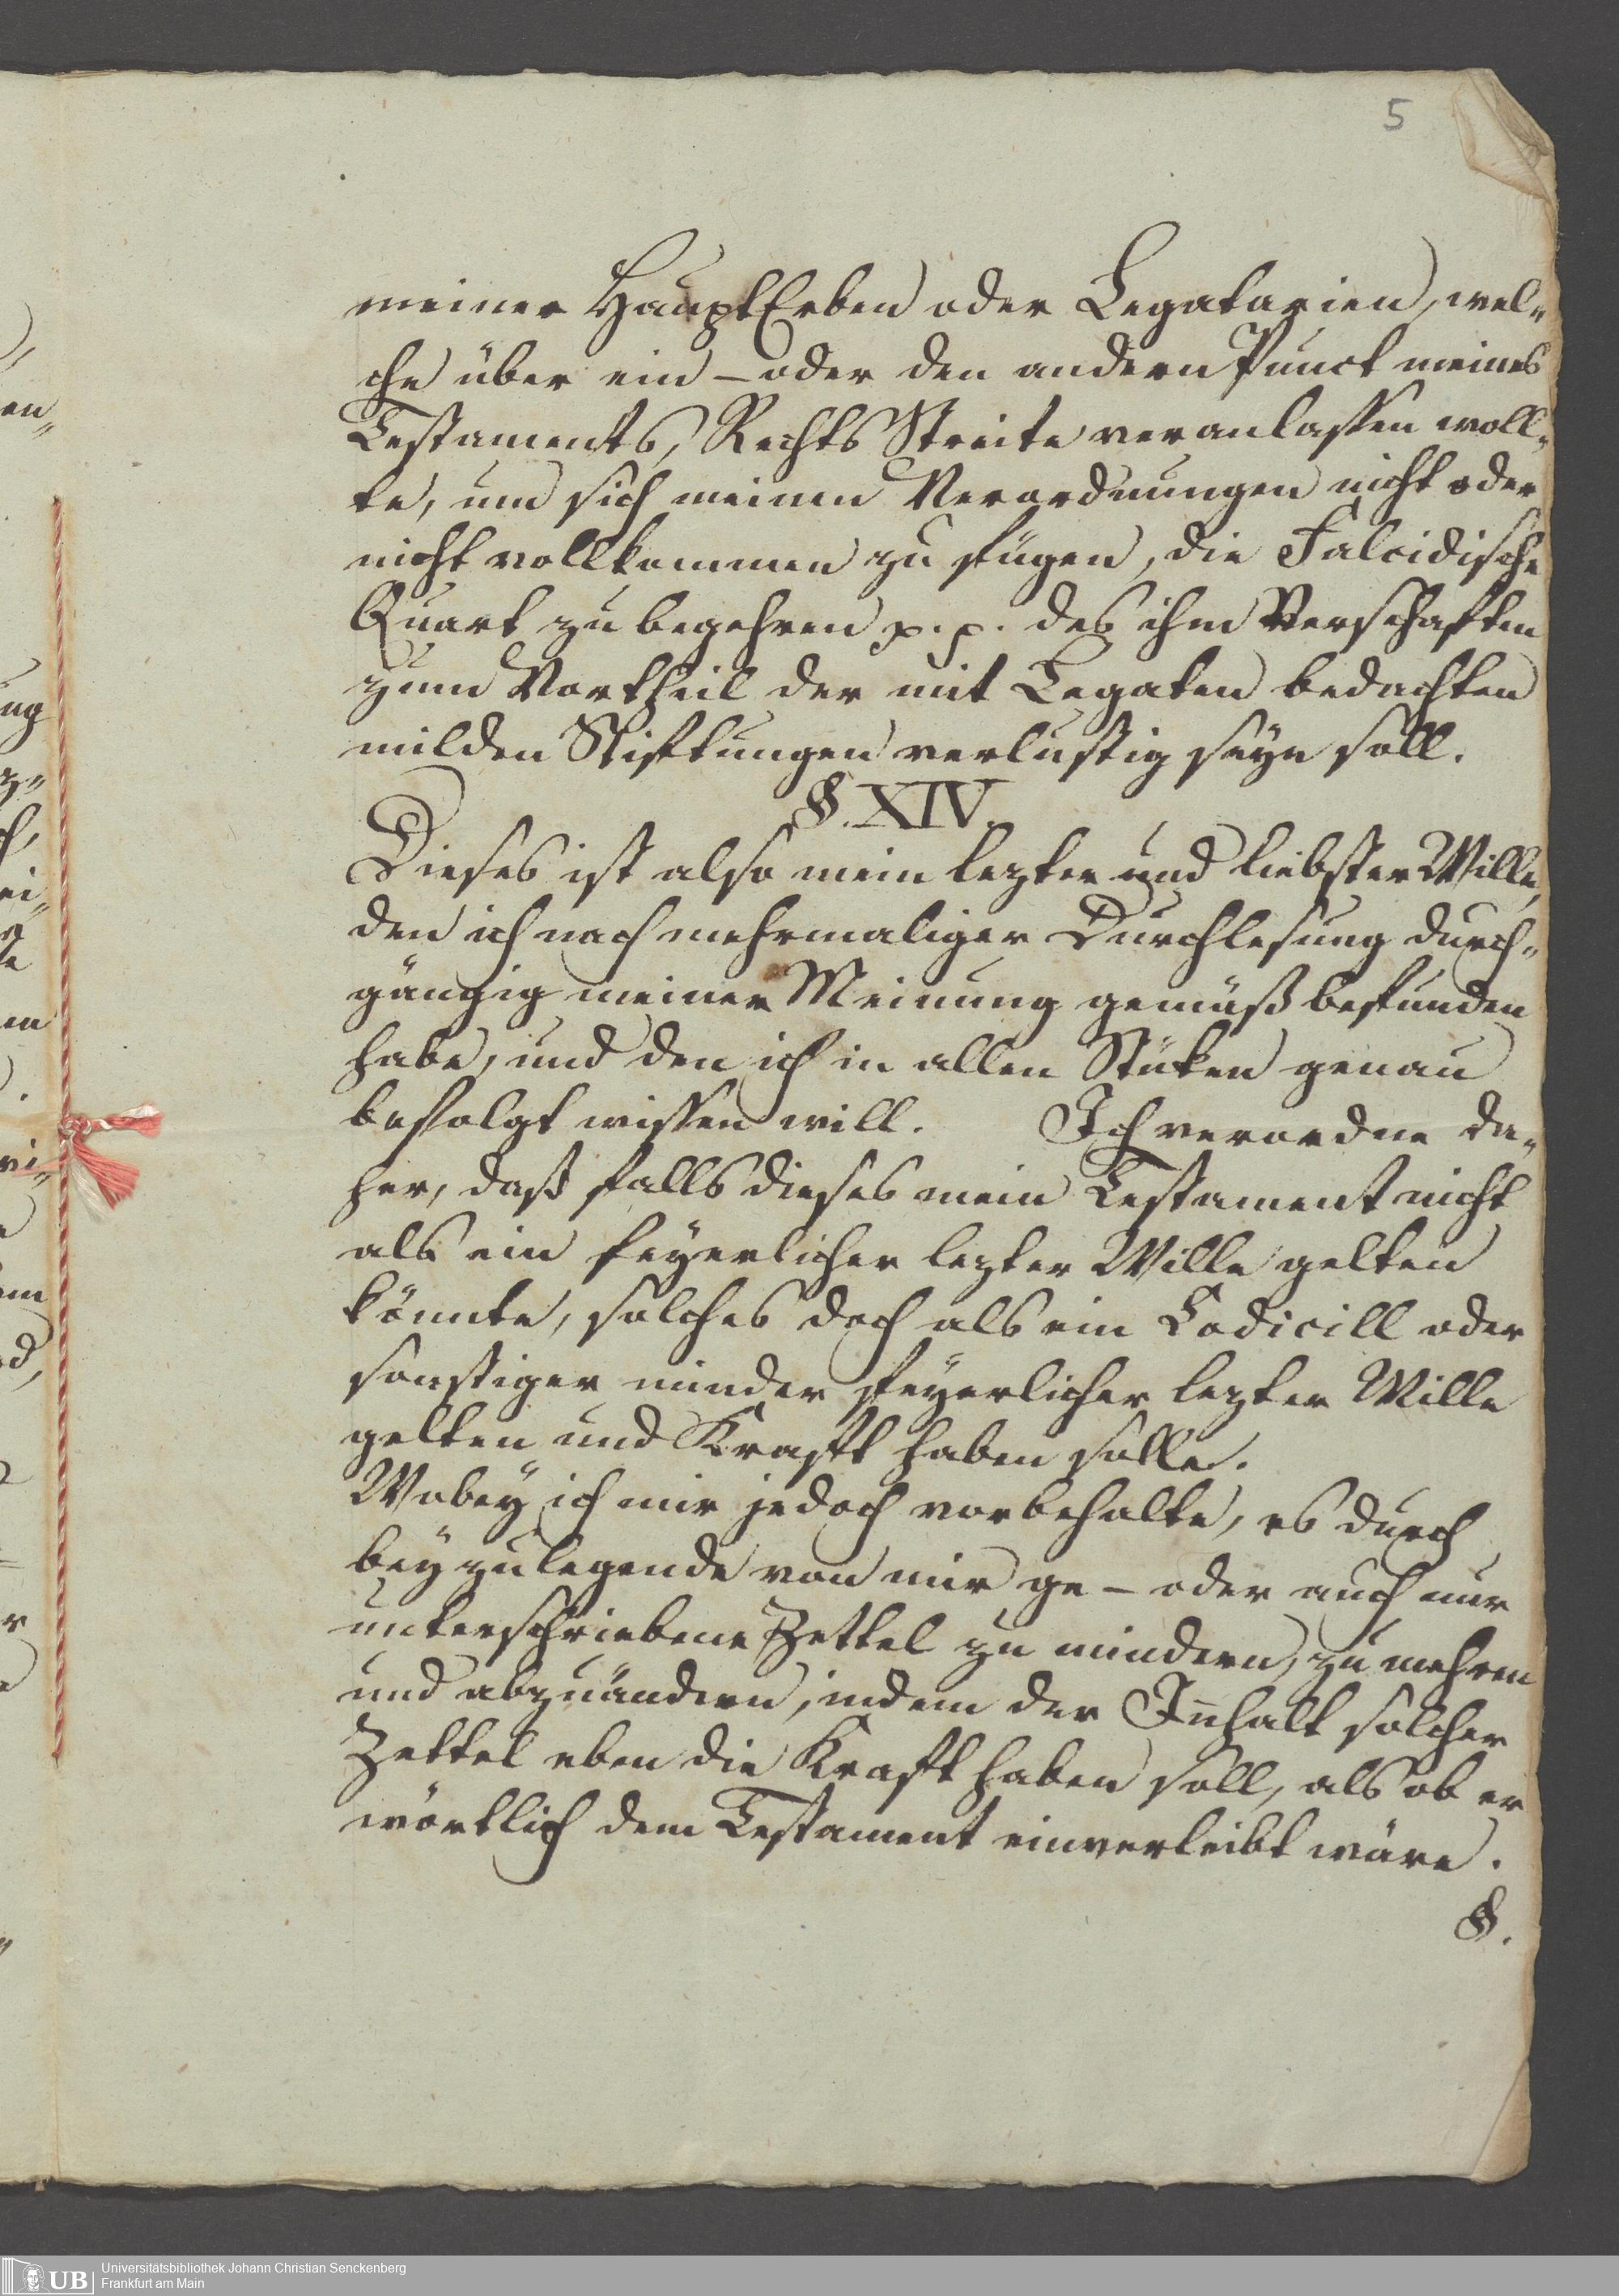 5
meiner HauptErben oder Legatarien, wel„
che über ein – oder den andern Punct meines
Testaments, Rechts Streite veranlassen woll„
te, um sich meinen Verordnungen nicht oder
nicht vollkommen zu fügen, die Falcidische
Quart zu begehren p. p. des ihm Verschafften
zum Vortheil der mit Legaten bedachten
milden Stiftungen verlustig seyn soll.
§. XIV.
Dieses ist also mein lezter und liebster Wille,
den ich nach mehrmaliger Durchlesung durch„
gängig meiner Meinung gemäß befunden
habe, und den ich in allen Stüken genau
befolgt wissen will. Ich verordne da„
her, daß falls dieses mein Testament nicht
als ein feyerlicher lezter Wille gelten
könnte, solches doch als ein Codicill oder
sonstiger minder feyerlicher lezter Wille
gelten und Krafft haben solle.
Wobey ich mir jedoch vorbehalte, es durch
beyzulegende von mir ge – oder auch nur
unterschriebene Zettel zu mindern, zu mehren
und abzuändern, indem der Inhalt solcher
Zettel eben die Krafft haben soll, als ob er
wörtlich dem Testament einverleibt wäre.
§.
en„
ug
ei„
em
d,
UB
Universitätsbibliothek Johann Christian Senckenberg
Frankfurt am Main